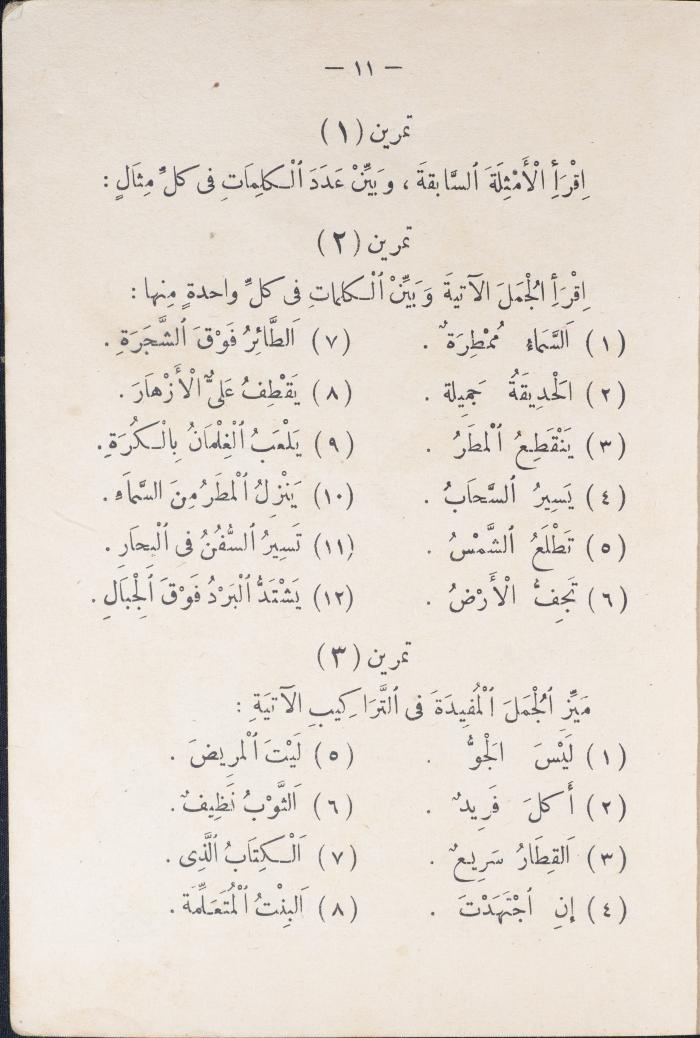 — ١١ —
تمرين (١)
اِقْرَأِ الْأَمْثِلَةَ ٱلسَّابقةَ ، وَبَيِّنْ عَدَدَ ٱلْكلِمَاتِ فى كلِّ مِثَالٍ :
تمرين (٢)
اِقْرَأِ ٱلْجُمَلَ الآتيةَ وَبَيِّنْ ٱلْكلماتِ فى كلِّ واحدةٍ مِنها :
(١) اَلسَّمَاءُ مُمْطِرَةٌ .
(٢) الحَدِيقَةُ جَمِيلة .
(٣) يَنْقَطِعُ ٱلْمطَرُ .
(٤) يَسِيرُ ٱلسَّحابُ .
(٥) تَطْلَعُ ٱلشَّمْسُ .
(٦) تَجِفُّ الْأَرْضُ .
(٧) اَلطَّائِرُ فَوْقَ ٱلشَّجَرَةِ .
(٨) يَقْطِفُ عَلىٌّ الْأَزْهَارَ .
(٩) يَلْعَبُ ٱلْغِلْمَانُ بِالْكُرَةِ .
(١٠) يَنْزِلُ ٱلْمطَرُ مِنَ السَّمَاءِ .
(١١) تَسِيرُ ٱلسُّفُنُ فى ٱلْبِحَارِ .
(١٢) يَشْتَدُّ ٱلْبَرْدُ فَوْقَ ٱلْجِبَالِ .
تمرين (٣)
مَيِّزِ ٱلْجُمَلَ ٱلْمُفِيدَةَ فى ٱلتَّرَاكِيبِ الآتيَةِ :
(١) لَيْسَ الجَوُّ .
(٢) أَكلَ فَرِيدٌ .
(٣) اَلقِطَارُ سَرِيعٌ .
(٤) إِنِ ٱجْتَهَدْتَ .
(٥) لَيْتَ ٱلْمرِيضَ .
(٦) اَلثَّوْبُ نَظِيفٌ .
(٧) اَلْكِتَابُ ٱلَّذِى .
(٨) اَلبِنْتُ ٱلْمُتَعَلِّمَة .